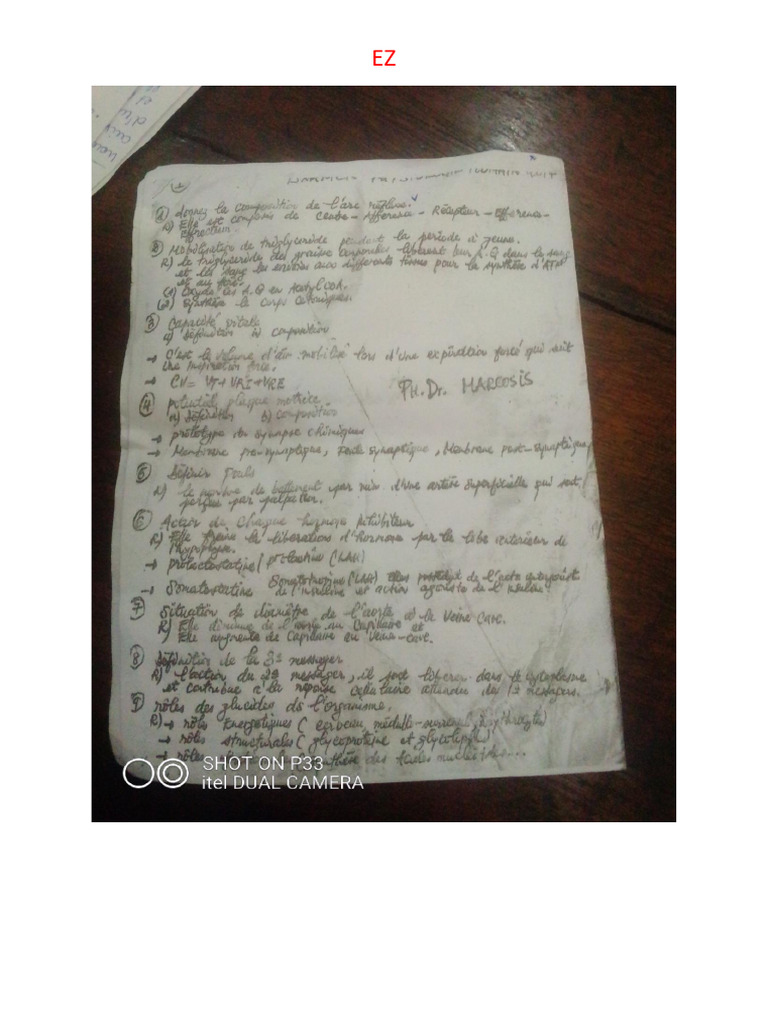 EZ
EXAMEN PHYSIOLOGIE HUMAIN
① donnez la composition de l'arc reflexe.
R) Elle est composée de Centre - Afférence - Récepteur - Efférence -
Effecteur.
② Mobilisation de triglyceride pendant la periode à jeune.
R) le triglyceride des graisse corporelles libèrent leur A.G dans le sang
et le sang les envoies aux differents tissus pour la synthèse d'ATP
et au foie.
Oxyde les A.G en Acetyl COA.
Synthèse le corps cetoniques.
③ Capacité vitale
a) définition b) composition
→ C'est le volume d'air mobilisé lors d'une expiration forcé qui suit
une inspiration forcé.
→ CV = VT + VRI + VRE
PH. Dr. MARCOSIS
④ potentiel plaque motrice
a) définition b) composition
→ prototype des synapse chimiques
→ Membrane pre-synaptique, fente synaptique, Membrane post-synaptique
⑤ Définir Pouls
R) le nombre de battement par min d'une artère superficielle qui sont
perçue par palpation.
⑥ Action de chaque hormone inhibiteur
R) Elle freine la libérations d'hormone par le lobe antérieur de
l'hypophyse.
→ prolactostatine (prolactine (LAH)
→ Somatostatine Somatotropine (LAH) de l'insuline et action de l'insuline
⑦ Situation de diamètre de l'aorte à la Veine Cave.
R) Elle diminue de l'aorte au Capillaire et
Elle augmente de Capillaire au Veine-cave.
⑧ Définition de la 3e messager
R) l'action du 2e messager, il sont libérer dans le cytoplasme
et contribue à la réponse cellulaire attendue des 1e messagers.
⑨ rôles des glucides ds l'organisme.
R) → rôles énergétiques (cerveau, medullo-surrenal, érythrocyte)
→ rôles structurales (glycoproteine et glycolipide)
→ rôles synthèse des acides nucléiques...
SHOT ON P33
itel DUAL CAMERA